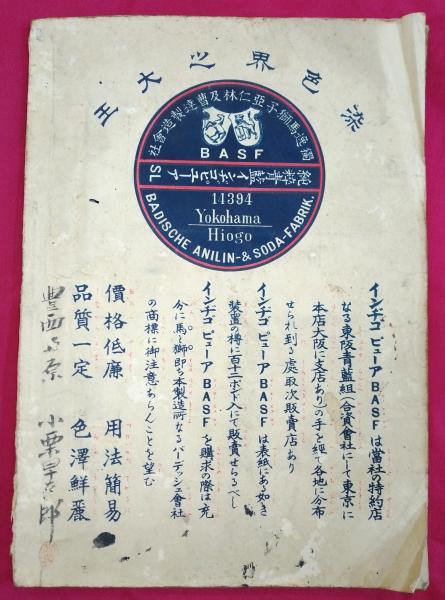 染色界之大王
獨逸馬獅子亞仁林及曹達製造會社
BASF
純粋青藍
インヂゴピュアー
SL
14394
Yokohama
Hiogo
BADISCHE ANILIN-& SODA-FABRIK.
インヂゴ ピューア BASFは當社の特約店
なる東阪青藍組(合資會社にして東京に
本店大阪に支店あり)の手を經て各地に分布
せられ到る處取次販賣店あり
インヂゴ ピューア BASFは表紙にある如き
装置の樽に百十二ポンド入にて販賣せらるべし
インヂゴ ピューア BASFを購求の際は充
分に馬と獅即ち本製造所なるバーデッシェ會社
の商標に御注意あらんことを望む
價格低廉 用法簡易
品質一定 色澤鮮麗
小栗